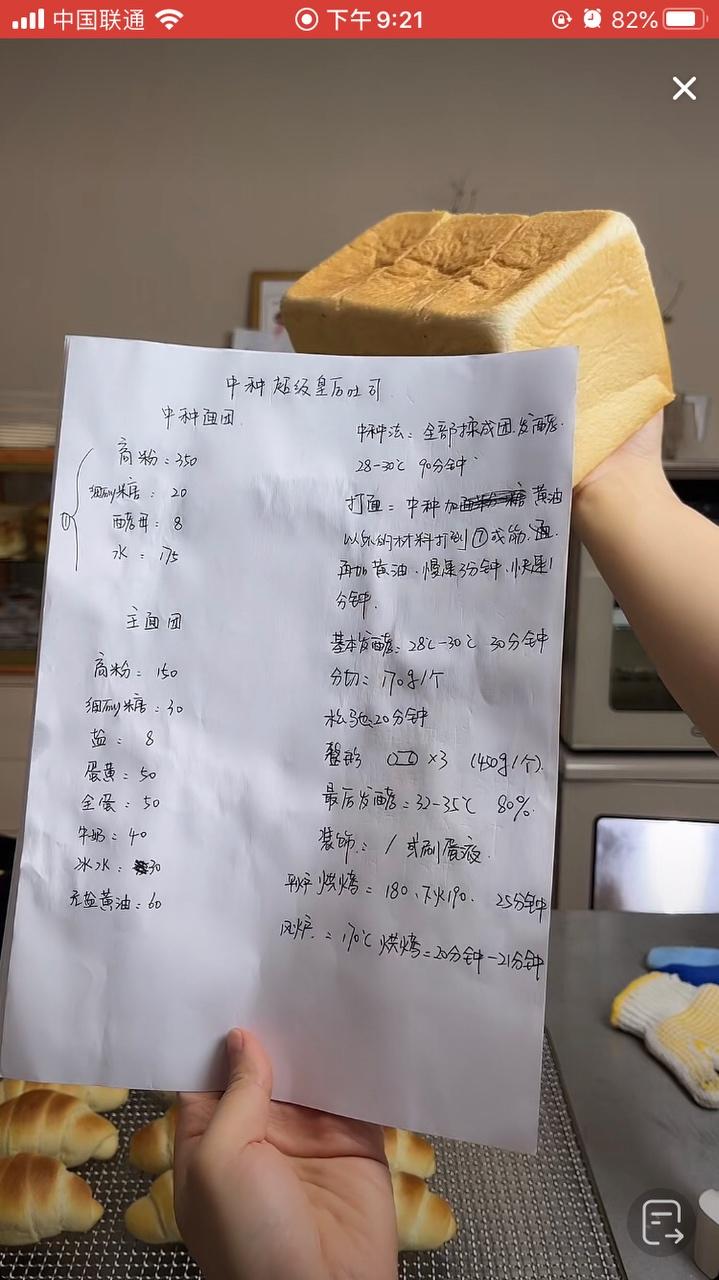 中国联通
下午9:21
82%
中种超级皇后吐司
中种面团
①
高粉：350
细砂糖：20
酵母：8
水：175
主面团
高粉：150
细砂糖：30
盐：8
蛋黄：50
全蛋：50
牛奶：40
冰水：30
无盐黄油：60
中种法：全部揉成团.发酵.
28-30℃ 90分钟
打面：中种加 黄油
以外的材料打到⑦成筋.
再加黄油.慢速3分钟.快速1
分钟.
基本发酵：28℃-30℃ 30分钟
分切：170g/个
松弛20分钟
整形 ×3 (450g/个).
最后发酵：32-35℃ 80%.
装饰：/ 或刷蛋液.
平炉烘烤：180、下火190. 25分钟
风炉：170℃ 烘烤：20分钟-21分钟